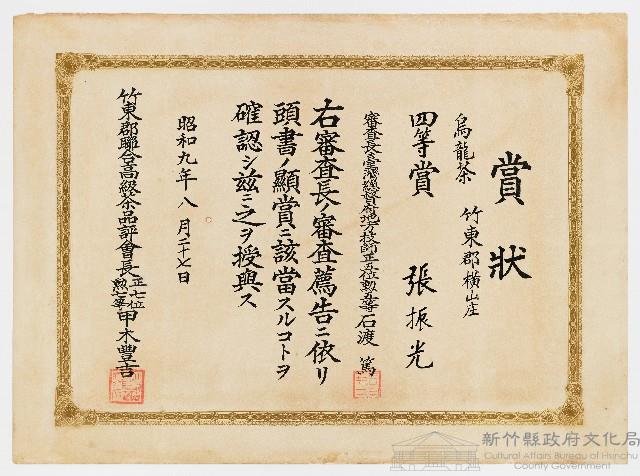 賞狀
烏龍茶 竹東郡橫山庄
四等賞 張振光
審查長臺灣總督府地方技師正五位勳五等石渡篤
右審査長ノ審査薦告ニ依リ
頭書ノ顯賞ニ該當スルコトヲ
確認シ茲ニ之ヲ授與ス
昭和九年八月二十七日
竹東郡聯合高級茶品評會長正七位勳六等甲木豐吉
新竹縣政府文化局
Cultural Affairs Bureau of Hsinchu
County Government